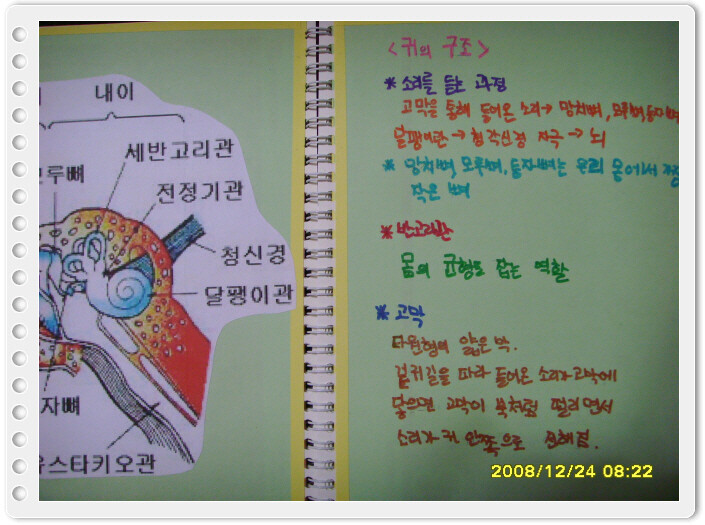 내이
세반고리관
루뼈
전정기관
청신경
달팽이관
자뼈
스타키오관
<귀의 구조>
* 소리를 듣는 과정
고막을 통해 들어온 소리→ 망치뼈, 모루뼈, 등자뼈
달팽이관 → 청각신경 자극 → 뇌
* 망치뼈, 모루뼈, 등자뼈는 우리 몸에서 가장
작은 뼈
* 반고리관
몸의 균형을 잡는 역할
* 고막
타원형의 얇은 막.
겉귀길을 따라 들어온 소리가 고막에
닿으면 고막이 북처럼 떨리면서
소리가 귀 안쪽으로 전해짐.
2008/12/24 08:22